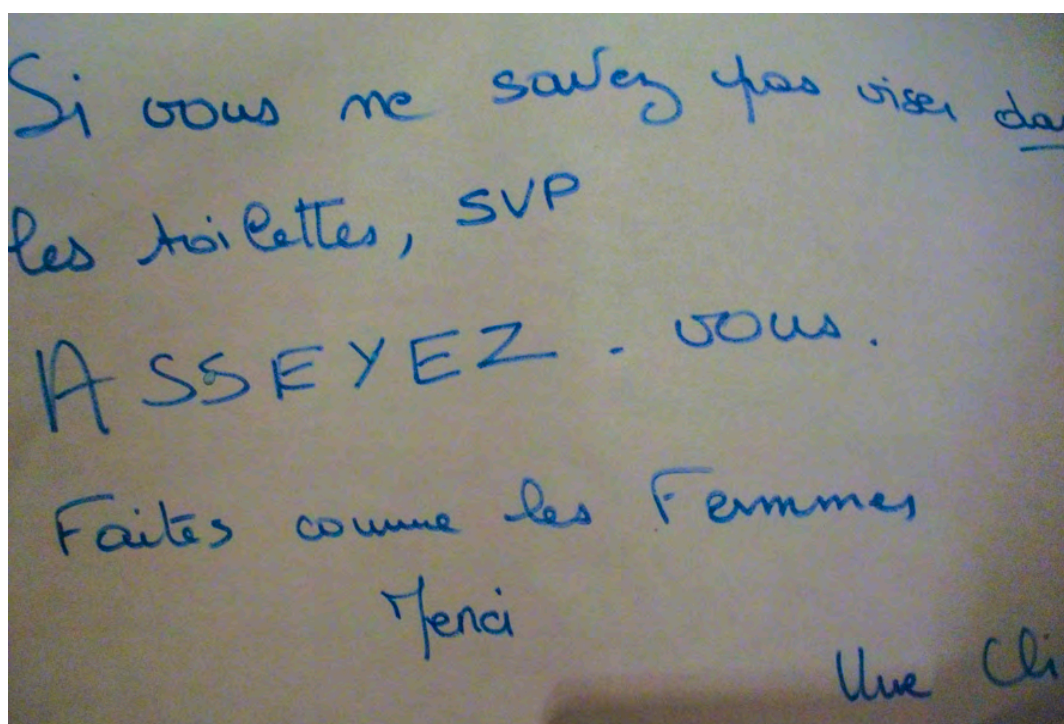 Si vous ne savez pas viser dans
les toilettes, SVP
ASSEYEZ-vous.
Faites comme les Femmes
Merci
Une Cli